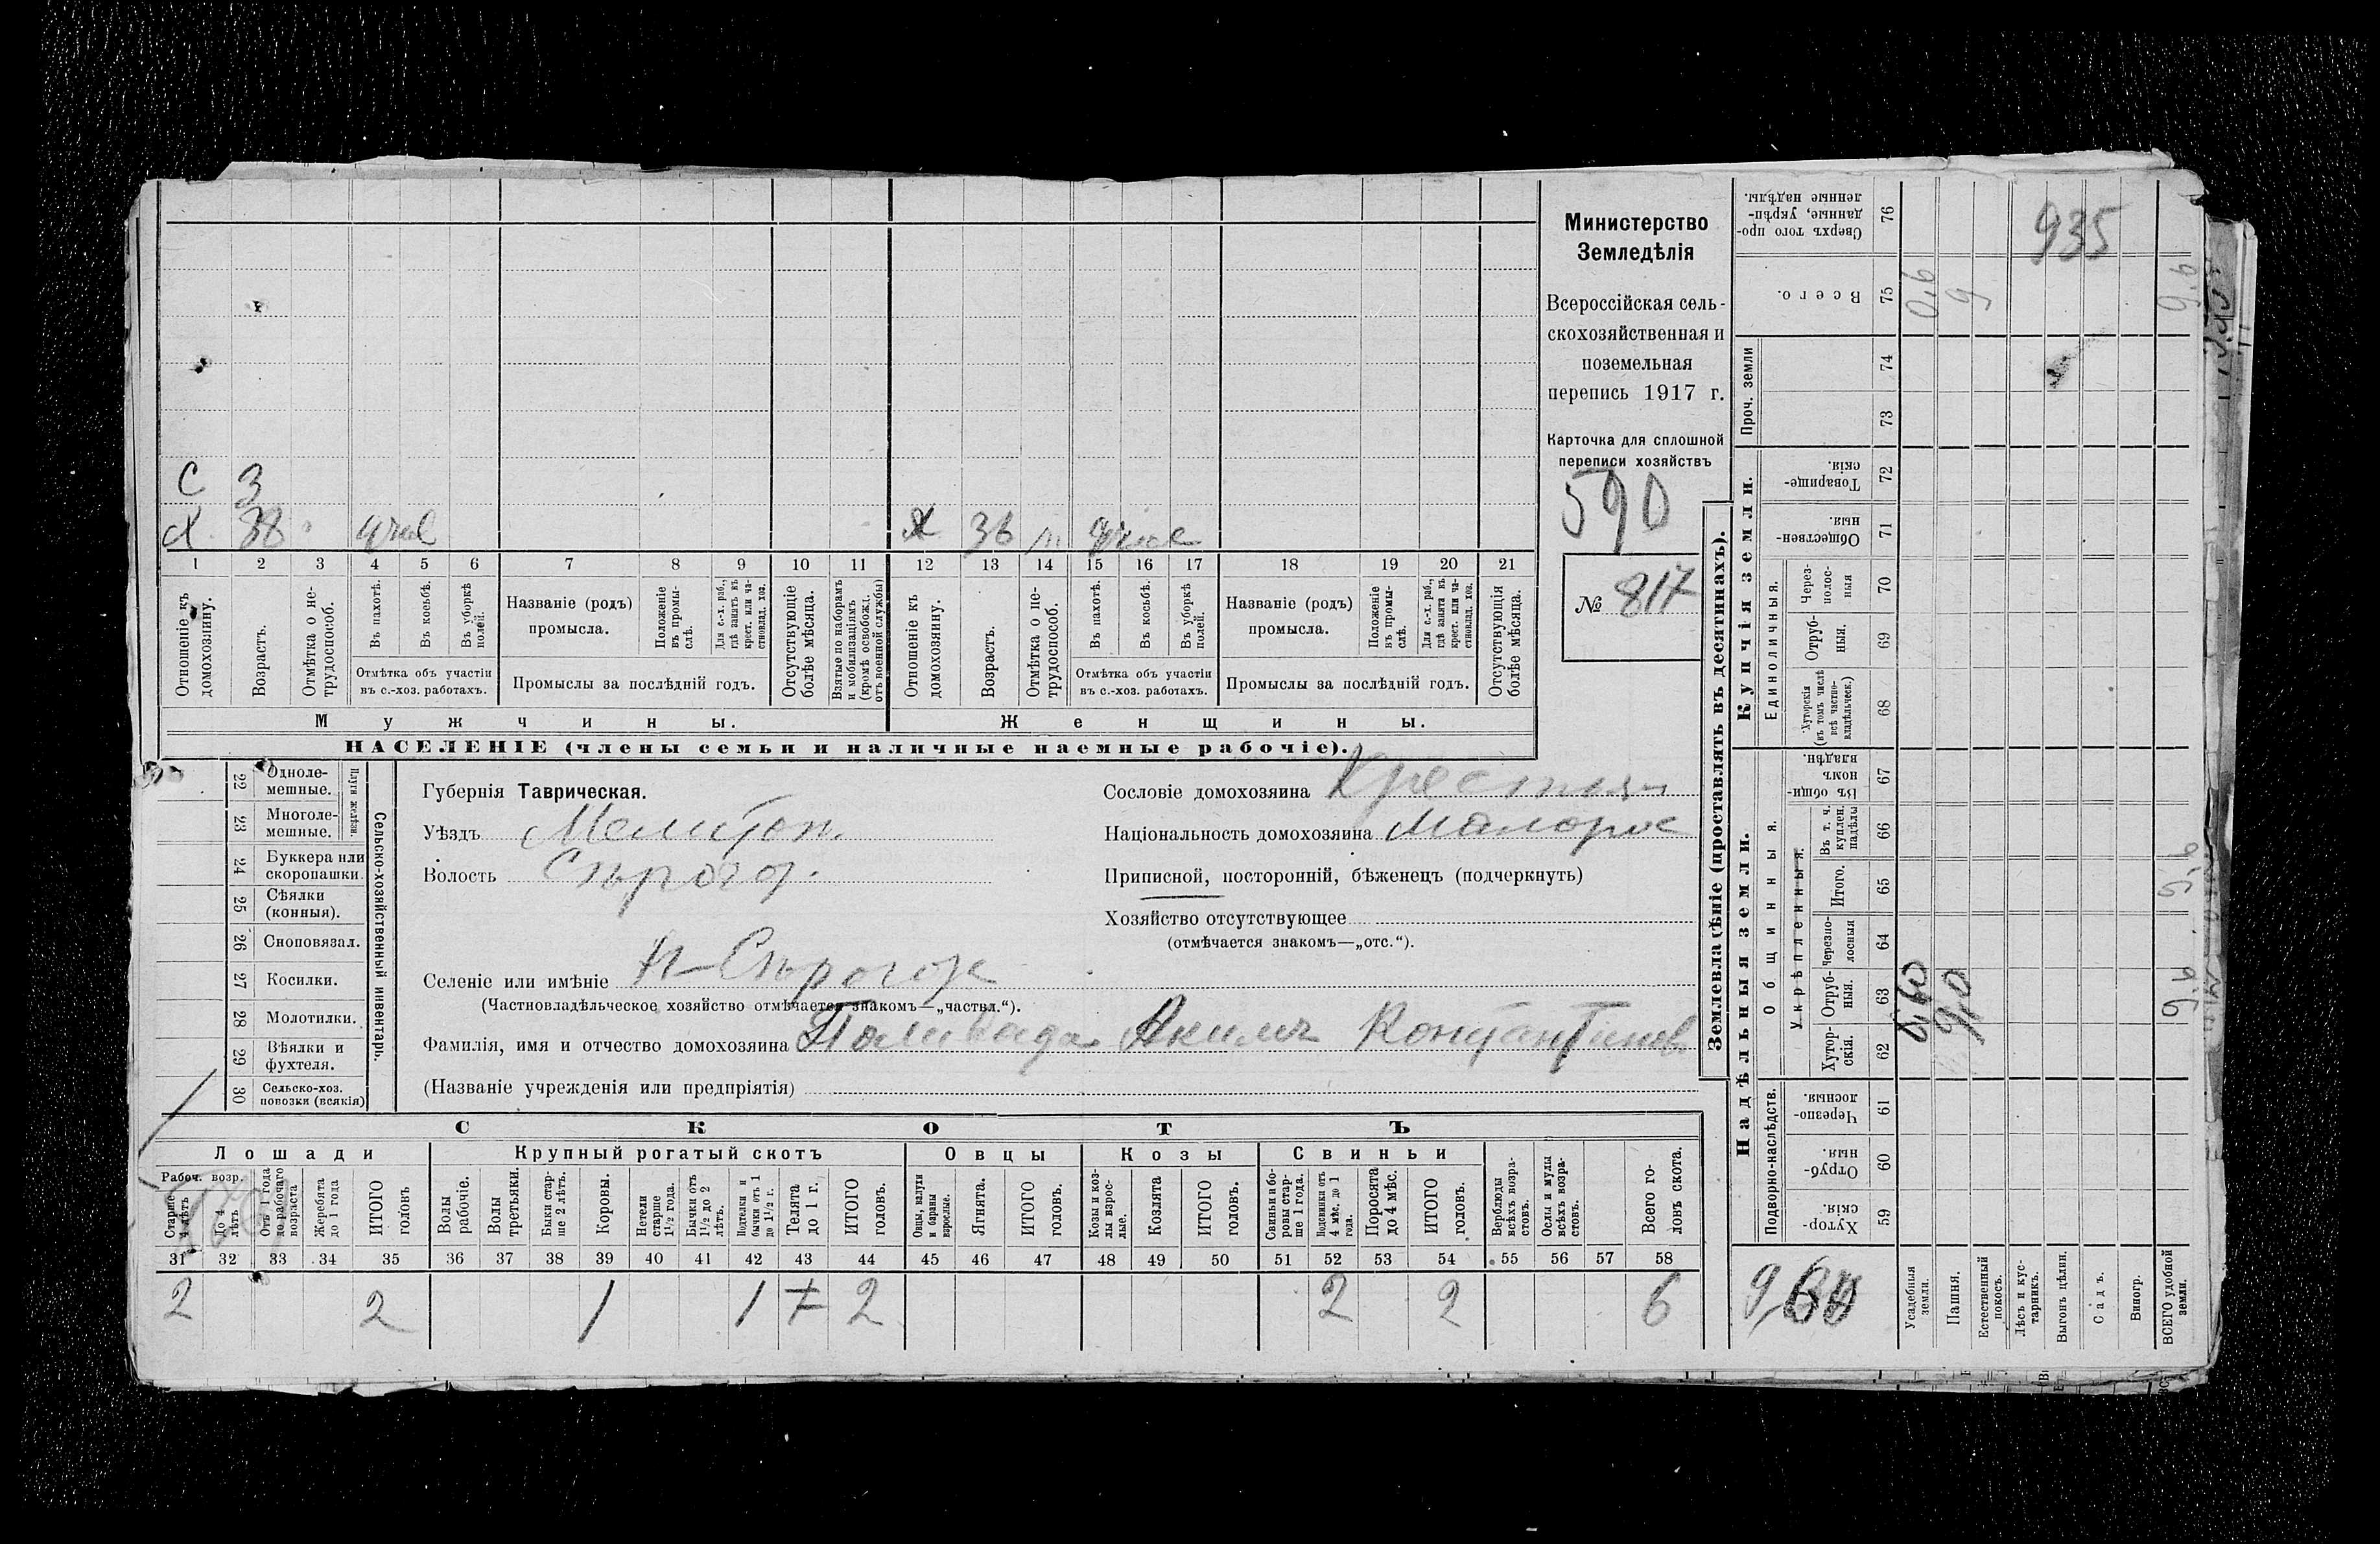 С 3
Х 38
Х 36
1 2 3 4 5 6 7 8 9 10 11 12 13 14 15 16 17 18 19 20 21
Отношеніе къ домохозяину.
Возрастъ.
Отмѣтка о не-
трудоспособ.
Въ пахотѣ.
Въ косьбѣ.
Въ уборкѣ полей.
Отмѣтка объ участіи
въ с.-хоз. работахъ.
Названіе (родъ)
промысла.
Положеніе въ промы-
слѣ.
Для с.-х. раб.,
гдѣ занятъ въ
крест. или ча-
стновлад. хоз.
Промыслы за послѣдній годъ.
Отсутствующіе
болѣе мѣсяца.
Взятые по наборамъ
и мобилизаціямъ
(кромѣ освобожд.
отъ военной службы)
Отношеніе къ
домохозяину.
Возрастъ.
Отмѣтка о не-
трудоспособ.
Въ пахотѣ.
Въ косьбѣ.
Въ уборкѣ
полей.
Отмѣтка объ участіи
въ с.-хоз. работахъ.
Названіе (родъ)
промысла.
Положеніе
въ промы-
слѣ.
Для с.-х. раб.,
гдѣ занята въ
крест. или ча-
стновлад. хоз.
Промыслы за послѣдній годъ.
Отсутствующія
болѣе мѣсяца.
Мужчины.
Женщины.
НАСЕЛЕНІЕ (члены семьи и наличные наемные рабочіе).
Министерство
Земледѣлія
Всероссійская сель-
скохозяйственная и
поземельная
перепись 1917 г.
Карточка для сплошной
переписи хозяйствъ
590
№ 817
22 Одноле-
мешные.
23 Многоле-
мешные.
Плуги желѣзн.
24 Буккера или
скоропашки.
25 Сѣялки
(конныя).
26 Сноповязал.
27 Косилки.
28 Молотилки.
29 Вѣялки и
фухтеля.
30 Сельско-хоз.
повозки (всякія)
Сельско-хозяйственный инвентарь.
Губернія Таврическая.
Уѣздъ Мелитоп.
Волость Сѣрогоз.
Селеніе или имѣніе Н-Сѣрогозы
(Частновладѣльческое хозяйство отмѣчается знакомъ—„частвл.“).
Фамилія, имя и отчество домохозяина Паливода Якимъ Константинов
(Названіе учрежденія или предпріятія)
Сословіе домохозяина Крестьян
Національность домохозяина Малорос
Приписной, посторонній, бѣженецъ (подчеркнуть)
Хозяйство отсутствующее
(отмѣчается знакомъ—„отс.“).
СКОТЪ
Лошади
Крупный рогатый скотъ
Овцы
Козы
Свиньи
Рабоч. возр.
Старше
4 лѣтъ
До 4
лѣтъ
Отъ 1 года
до рабочаго
возраста
Жеребята
до 1 года
ИТОГО
головъ
Волы
рабочіе.
Волы
третьяки.
Быки стар-
ше 2 лѣтъ.
Коровы.
Нетели
старше
1½ года.
Бычки отъ
1½ до 2
лѣтъ.
Подтелки и
бычки отъ 1
до 1½ г.
Телята
до 1 г.
ИТОГО
головъ.
Овцы, валухи
и бараны
взрослые.
Ягнята.
ИТОГО
головъ.
Козы и коз-
лы взрос-
лые.
Козлята
ИТОГО
головъ.
Свиньи и бо-
ровы стар-
ше 1 года.
Подсвинки отъ
4 мѣс. до 1
года.
Поросята
до 4 мѣс.
ИТОГО
головъ.
Верблюды
всѣхъ возра-
стовъ.
Ослы и мулы
всѣхъ возра-
стовъ.
Всего го-
ловъ скота.
31 32 33 34 35 36 37 38 39 40 41 42 43 44 45 46 47 48 49 50 51 52 53 54 55 56 57 58
2 2 1 1 2 2 2 6
Землевладѣніе (проставлять въ десятинахъ).
Надѣльныя земли.
Купчія земли.
Проч. земли
Подворно-наслѣдств.
Общинныя.
Укрѣпленныя.
Единоличныя.
Хутор-
скія.
59
Отруб-
ныя.
60
Черезпо-
лосныя
61
Хутор-
скія.
62
Отруб-
ныя.
63
Черезпо-
лосныя
64
Итого.
65
Въ т. ч.
куплен.
надѣлы
66
Въ общи-
номъ
владѣн.
67
Хуторскія
(въ томъ числѣ
всѣ частно-
владѣльческ.)
68
Отруб-
ныя.
69
Через-
полос-
ныя
70
Обществен-
ныя.
71
Товарище-
скія.
72
73
74
Всего.
75
Сверхъ того про-
данные, укрѣп-
ленные надѣлы.
76
935
Усадебныя
земли.
Пашня.
Естественный
покосъ.
Лѣсъ и кус-
тарникъ.
Выгонъ цѣлин.
Садъ.
Виногр.
ВСЕГО удобной
земли.